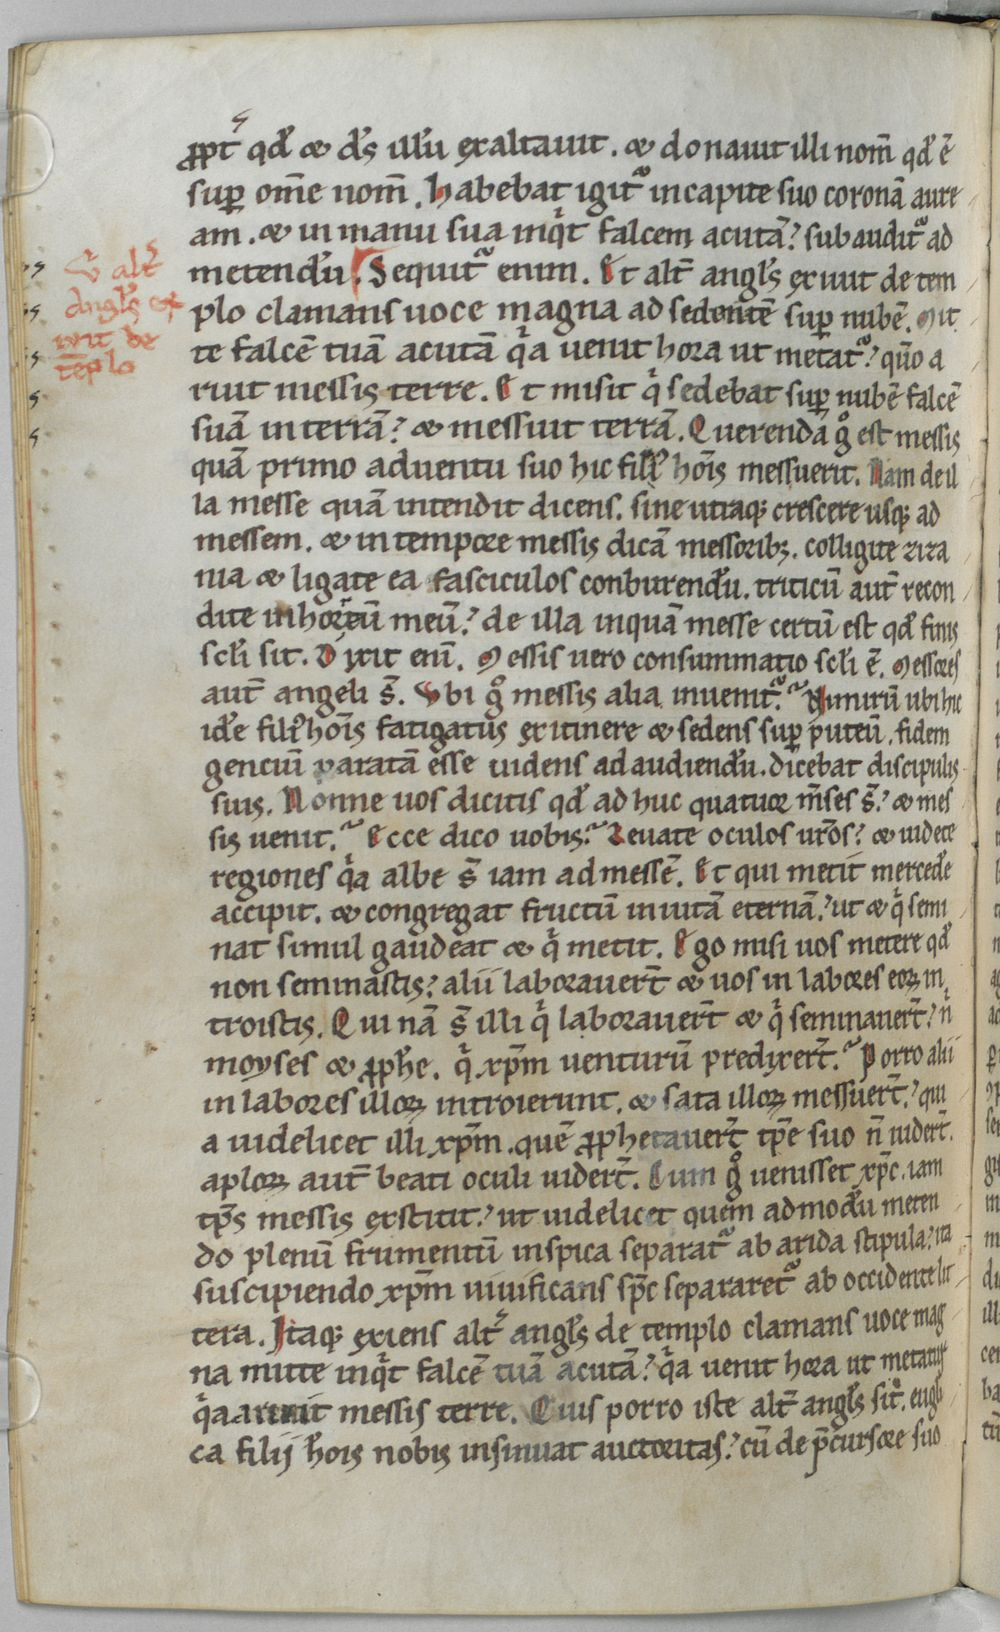 ꝓpt̄ qđ ⁊ ds̄ illū exaltauit. ⁊ donauit illi nom̄ qđ ē
suꝑ om̄e nom̄. habebat igit᷑ in capite suo coronā aure
am. ⁊ in manu sua inqͥt falcem acutā? subaudit᷑ ad
metendū. Sequit᷑ enim. Et alt̄ angl̄s exiuit de tem
plo clamans uoce magna ad sedentē suꝑ nubē. Mit
te falcē tuā acutā qͥa uenit hora ut metat᷑? qūo a
ruit messis terre. Et misit qͥ sedebat suꝑ nubē falcē
suā in terrā? ⁊ messuit terrā. Querenda gͦ est messis
quā primo aduentu suo hic fili᷒ hoīs messuerit. Nam de il
la messe quā intendit dicens. sine utraqꝫ crescere usqꝫ ad
messem. ⁊ in tempore messis dicā messoribꝫ. colligite ziza
nia ⁊ ligate ea fasciculos conburendū. triticū aut̄ recon
dite in horreū meū? de illa inquā messe certū est qđ finis
scl̄i sit. Dixit enī. Messis uero consummatio scl̄i ē. Messores
aut̄ angeli s̄. Vbi gͦ messis alia inuenit᷑? Nimirū ubi hic
idē fili᷒ hoīs fatigatus ex itinere ⁊ sedens suꝑ puteū. fidem
genciū paratā esse uidens ad audiendū. dicebat discipulis
suis. Nonne uos dicitis qđ ad huc quatuor m̄ses s̄? ⁊ mes
sis uenit? Ecce dico uobis? Leuate oculos ur̄os? ⁊ uidete
regiones qͥa albe s̄ iam ad messē. Et qui metit mercedē
accipit. ⁊ congregat fructū in uitā eternā? ut ⁊ qͥ semi
nat simul gaudeat ⁊ qͥ metit. Ego misi uos metere qđ
non seminastis? alii laborauer̄t ⁊ uos in labores eoꝝ in
troistis. Qui nā s̄ illi qͥ laborauer̄t ⁊ qͥ seminauer̄t? n̄
moyses ⁊ ꝓph̄e. qͥ xp̄m uenturū predixer̄t? Porro alii
in labores illoꝝ introierunt. ⁊ sata illoꝝ messuer̄t? qui
a uidelicet illi xp̄m. quē ꝓphetauer̄t tp̄e suo n̄ uider̄t.
apl̄oꝝ aut̄ beati oculi uider̄t. Cum gͦ uenisset xp̄c. iam
tp̄s messis exstitit? ut uidelicet quem admodū meten
do plenū frumentū in spica separat᷑ ab arida stipula? ita
suscipiendo xp̄m uiuificans sp̄c separaret᷑ ab occidente lit
tera. Itaqꝫ exiens alt̄ angl̄s de templo clamans uoce mag
na mitte inqͥt falcē tuā acutā? qͥa uenit hora ut metatur
qͥa aruit messis terre. Cuius porro iste alt̄ angl̄s sit. eugl̄i
ca filij hoīs nobis insinuat auctoritas? cū de p̄cursore suo
Et alt̄
angl̄s ex
iuit de
tēplo